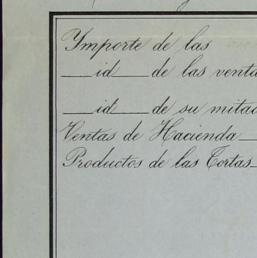 Ymporte de las
id de las venta
id de su mitad
Ventas de Hacienda
Productos de las Tortas